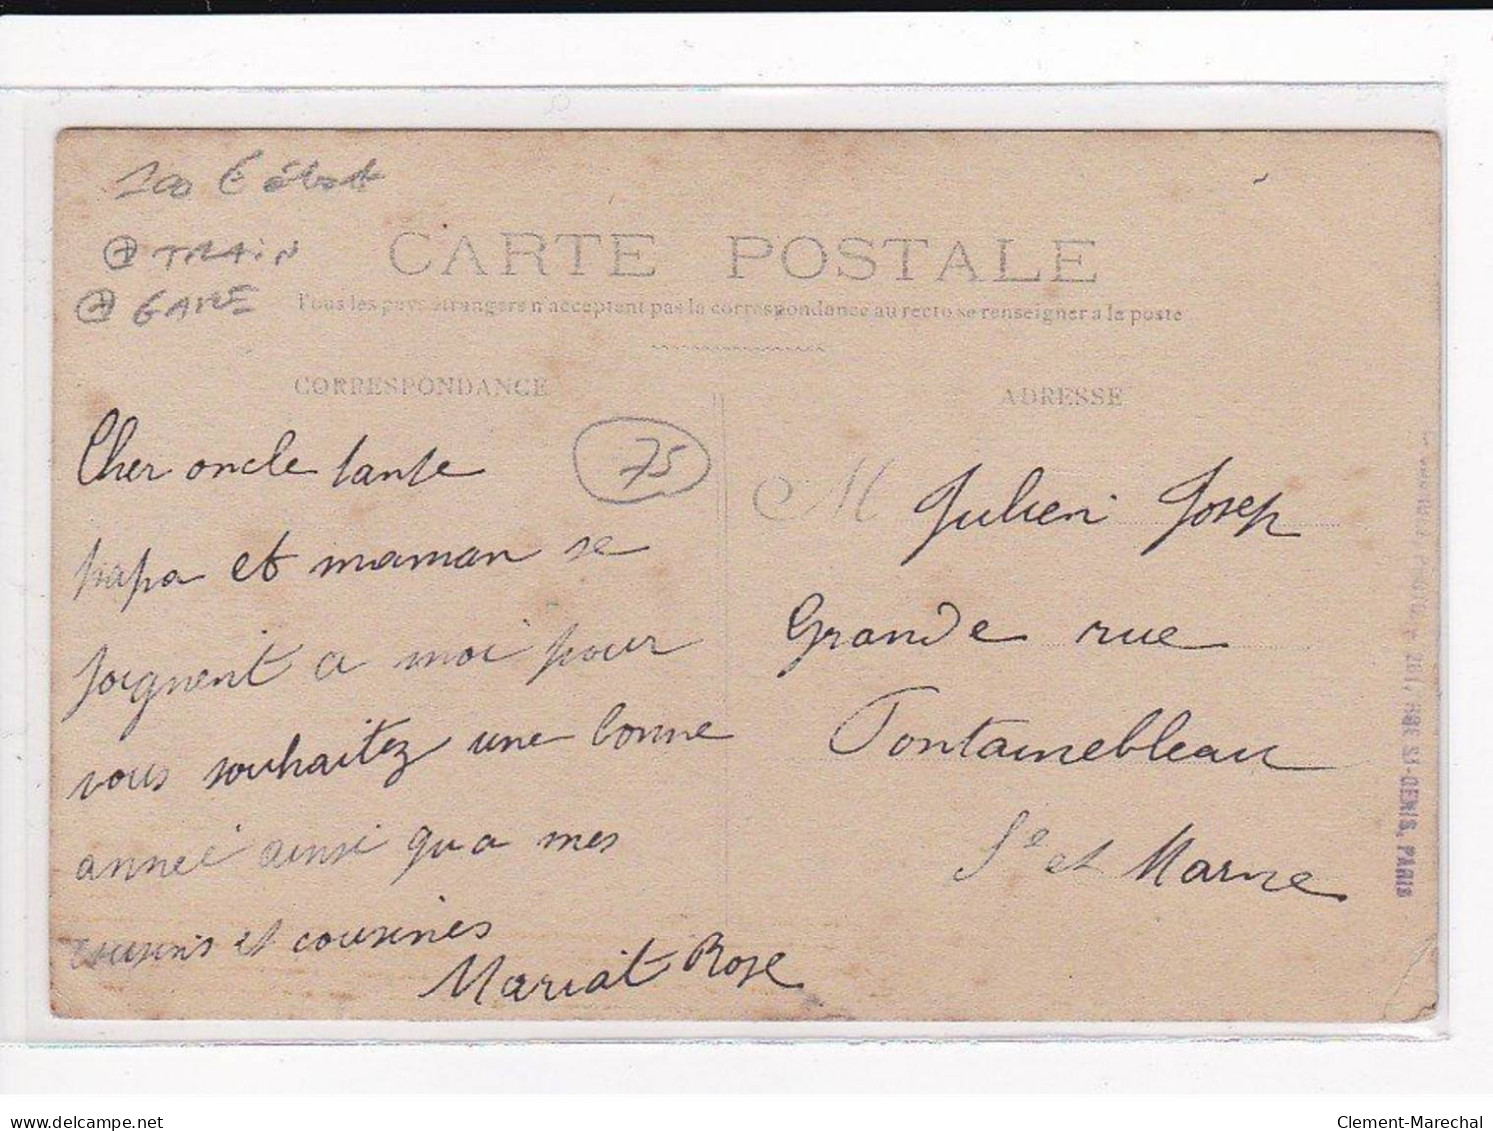 100 € état
+ TRAIN
+ GARE
CARTE POSTALE
Tous les pays étrangers n'acceptent pas la correspondance au recto se renseigner a la poste
CORRESPONDANCE
75
Cher oncle tante
papa et maman se
joignent a moi pour
vous souhaitez une bonne
année ainsi qu a mes
cousins et cousines
Mariat Rose
ADRESSE
M Julien Josep
Grande rue
Fontainebleau
S^e et Marne
261, RUE St-DENIS, PARIS
www.delcampe.net
Clement-Marechal